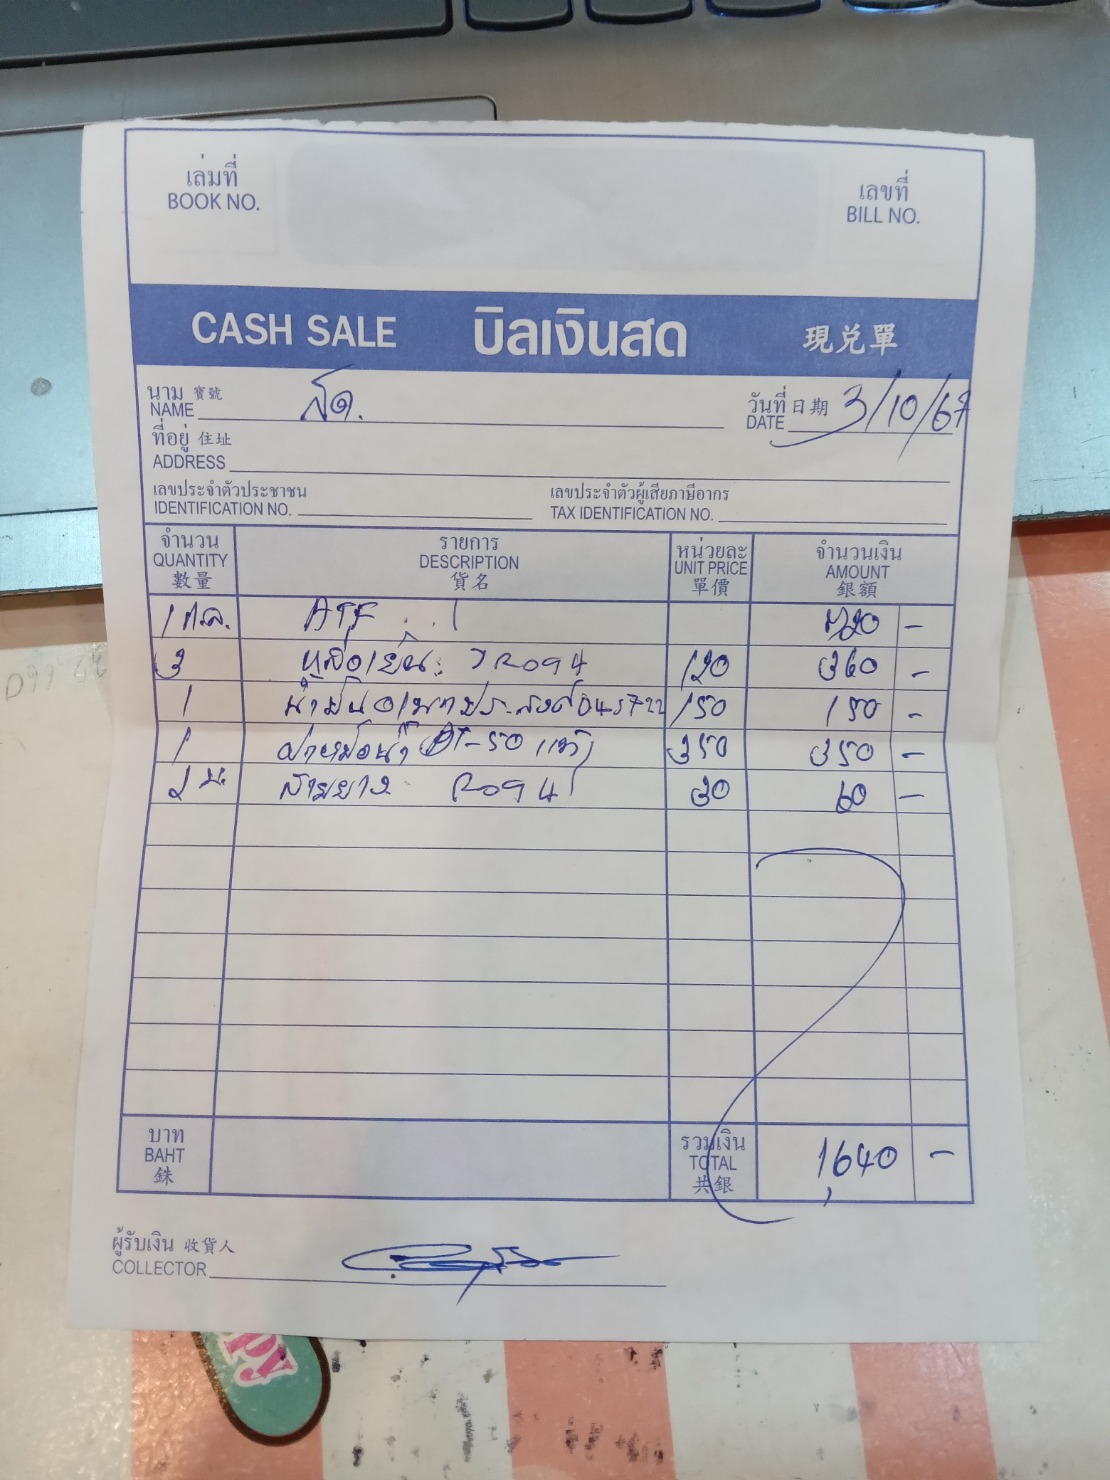 เล่มที่
BOOK NO.
เลขที่
BILL NO.
CASH SALE บิลเงินสด 現兌單
นาม 寳號
NAME สด.
วันที่ 日期
DATE 3/10/67
ที่อยู่ 住址
ADDRESS
เลขประจำตัวประชาชน
IDENTIFICATION NO.
เลขประจำตัวผู้เสียภาษีอากร
TAX IDENTIFICATION NO.
จำนวน
QUANTITY
數量
รายการ
DESCRIPTION
貨名
หน่วยละ
UNIT PRICE
單價
จำนวนเงิน
AMOUNT
銀額
1 ก.ล. ATF 720 -
3 หล่อเย็น R094 120 360 -
1 น้ำมันอเนกประสงค์ 150 150 -
1 ฝาหม้อน้ำ AT-50 แท้ 350 350 -
2 ม. สายยาง R094 30 60 -
บาท
BAHT
銖
รวมเงิน
TOTAL
共銀
1,640 -
ผู้รับเงิน 收貨人
COLLECTOR
py